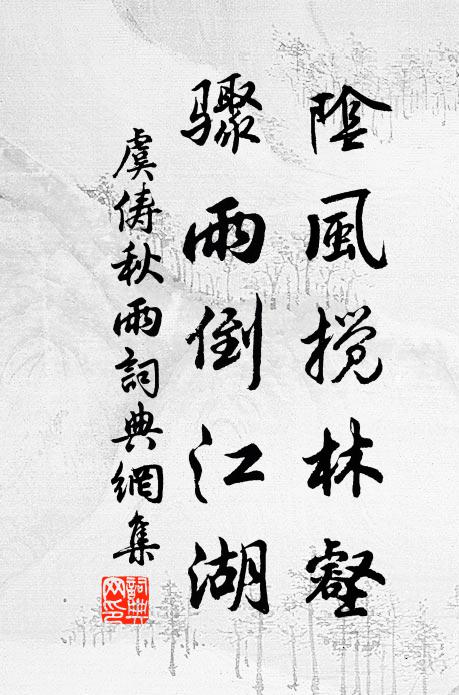 陰風攪林壑
驟雨倒江湖
虞儔秋雨詞典網集
詞典網印